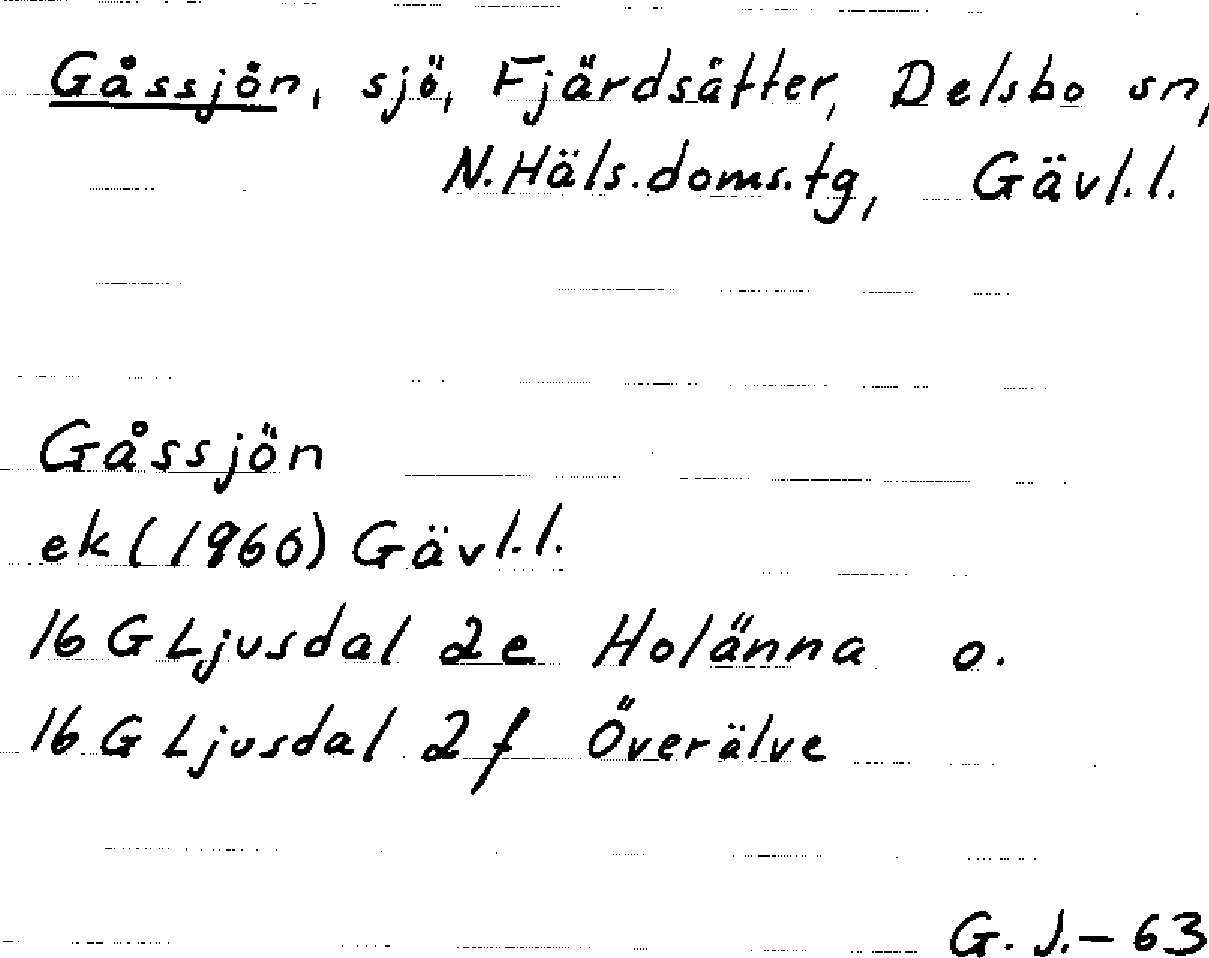 Gåssjön, sjö, Fjärdsätter, Delsbo sn,
N.Häls.doms.tg, Gävl.l.
Gåssjön
ek (1960) Gävl.l.
16 G Ljusdal 2e Holänna o.
16 G Ljusdal 2f Överälve
G. J. - 63